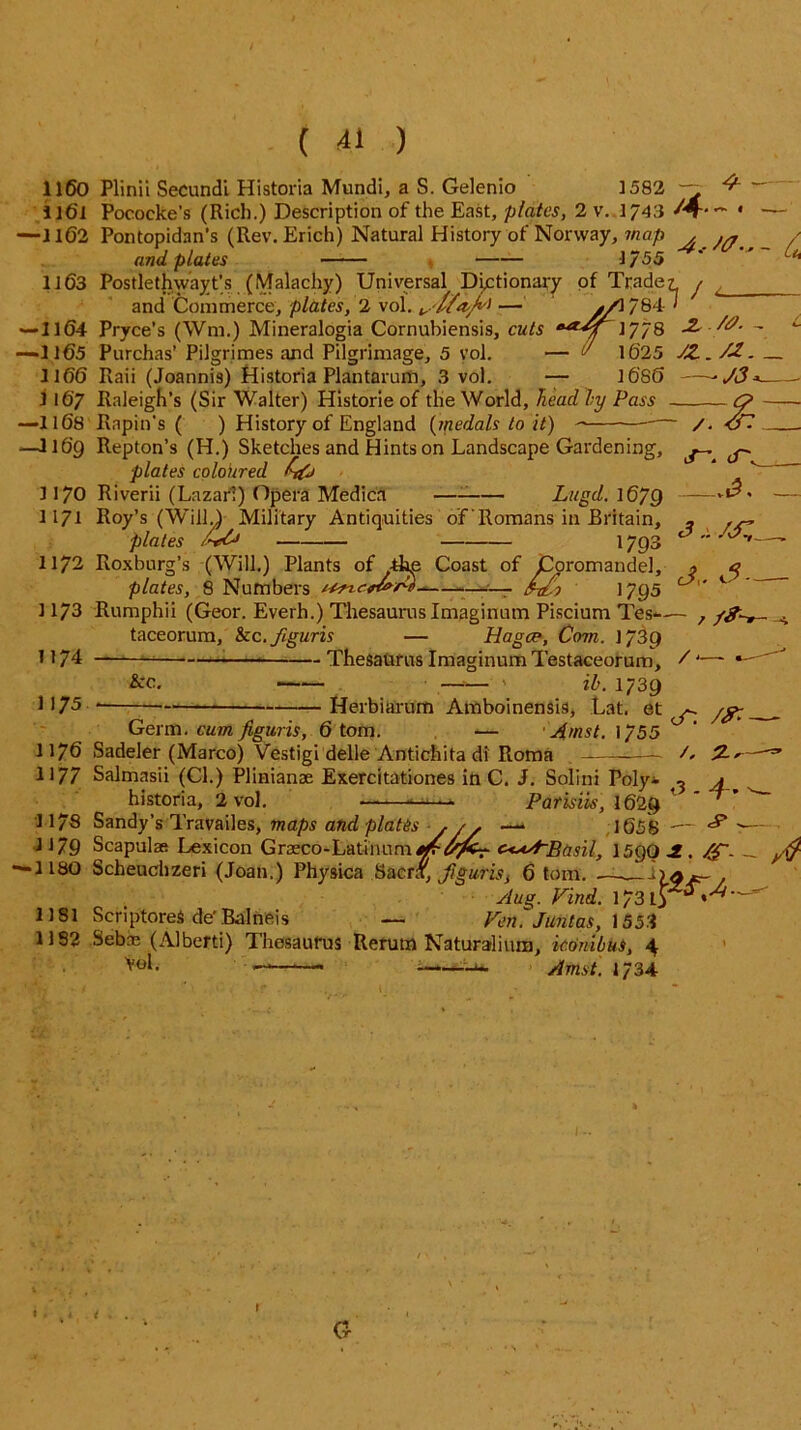 ( 41 )
1160 Plinii Secundi Historia Mundi, a S. Gelenio 1582 — 4 —
1161 Pococke's (Rich.) Description of the East, plates, 2 v. 1743 14 — —
—1162 Pontopidan's (Rev. Erich) Natural History of Norway, map
and plates —— —— 1755 4. 10. —
1163 Postlethwayt's (Malachy) Universal Dictionary of Trade
and Commerce, plates, 2 vol. — 1784
—1164 Pryce's (Wm.) Mineralogia Cornubiensis, cuts 1778 2. 10. -
—1165 Purchas' Pilgrimes and Pilgrimage, 5 vol. — 1625 12. 12. —
1166 Raii (Joannis) Historia Plantarum, 3 vol. — 1686 — 13 —
1167 Raleigh's (Sir Walter) Historie of the World, head by Pass — 9 —
—1168 Rapin's ( ) History of England (medals to it) —— 1.
—1169 Repton's (H.) Sketches and Hints on Landscape Gardening,
plates coloured 5. 5. —
1170 Riverii (Lazari) Opera Medica —— Lugd. 1679 — 3. —
1171 Roy's (Will.) Military Antiquities of Romans in Britain,
plates —— —— 1793 3. 15. —
1172 Roxburg's (Will.) Plants of the Coast of Coromandel,
plates, 8 Numbers —— 1795 3. 3. —
1173 Rumphii (Geor. Everh.) Thesaurus Imaginum Piscium Tes-
taceorum, &c. figuris — Hagæ, Com. 1739
1174 —— Thesaurus Imaginum Testaceorum, 1 — —
&c. —— —— ib. 1739
1175 —— Herbiarum Amboinensis, Lat. et
Germ. cum figuris, 6 tom. — Amst. 1755 5. 18. —
1176 Sadeler (Marco) Vestigi delle Antichita di Roma —— 1. 2. —
1177 Salmasii (Cl.) Plinianæ Exercitationes in C. J. Solini Poly-
historia, 2 vol. —— Parisiis, 1629 3. 4. —
1178 Sandy's Travailes, maps and plates — 1658 — 8 —
1179 Scapulæ Lexicon Græco-Latinum Basil, 1590 2. 15. —
—1180 Scheuchzeri (Joan.) Physica Sacra, figuris, 6 tom. ——
Aug. Vind. 1731
1181 Scriptores de Balneis — Ven. Juntas, 1553
1182 Sebæ (Alberti) Thesaurus Rerum Naturalium, iconibus, 4
vol. —— —— Amst. 1734
G